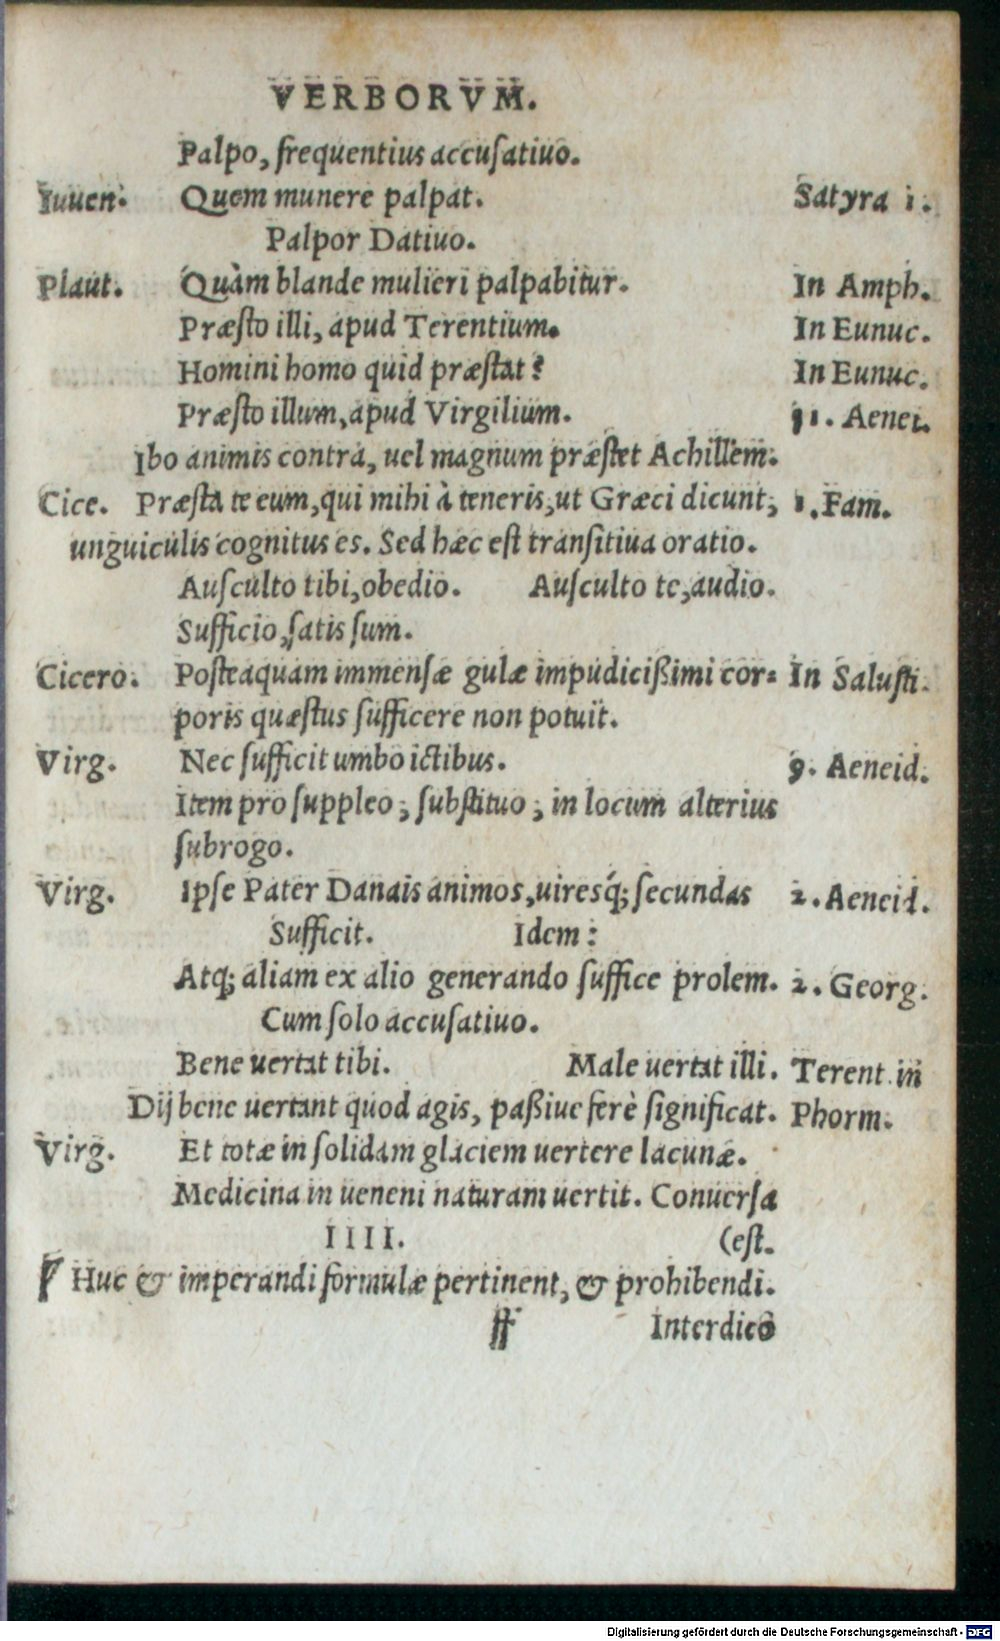 VERBORVM.
Palpo, frequentius accusatiuo.
Iuuen. Quem munere palpat. Satyra 1.
Palpor Datiuo.
Plaut. Quàm blande mulieri palpabitur. In Amph.
Præsto illi, apud Terentium. In Eunuc.
Homini homo quid præstat? In Eunuc.
Præsto illum, apud Virgilium. 11. Aenei.
Ibo animis contrà, uel magnum præstet Achillem.
Cice. Præsta te eum, qui mihi à teneris, ut Græci dicunt, 1. Fam.
unguiculis cognitus es. Sed hæc est transitiua oratio.
Ausculto tibi, obedio. Ausculto te, audio.
Sufficio, satis sum.
Cicero. Posteaquam immensæ gulæ impudicißimi cor= In Salusti.
poris quæstus sufficere non potuit.
Virg. Nec sufficit umbo ictibus. 9. Aeneid.
Item pro suppleo, substituo, in locum alterius
subrogo.
Virg. Ipse Pater Danais animos, uiresq́; secundas 2. Aeneid.
Sufficit. Idem:
Atq; aliam ex alio generando suffice prolem. 2. Georg.
Cum solo accusatiuo.
Bene uertat tibi. Male uertat illi. Terent in
Dij bene uertant quod agis, paßiue ferè significat. Phorm.
Virg. Et totæ in solidam glaciem uertere lacunæ.
Medicina in ueneni naturam uertit. Conuersa
IIII. (est.
Huc & imperandi formulæ pertinent, & prohibendi.
ff Interdico
Digitalisierung gefördert durch die Deutsche Forschungsgemeinschaft - DFG